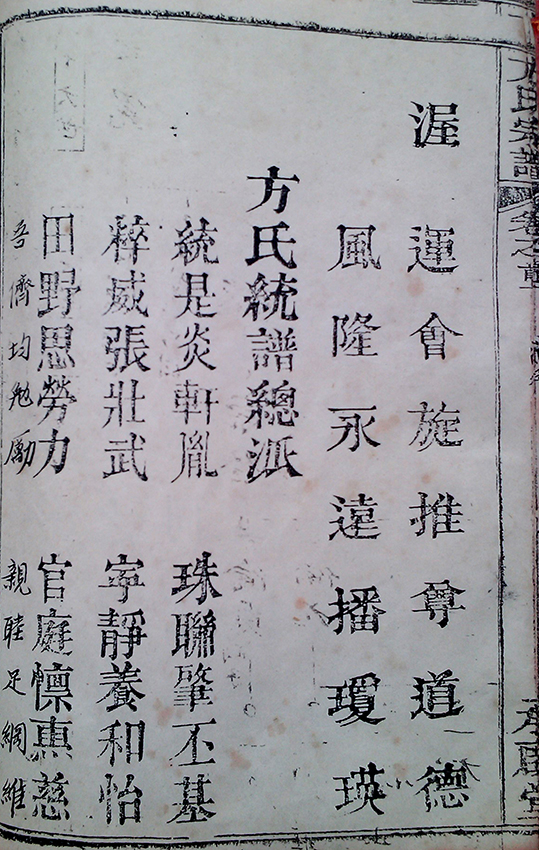 方氏宗譜 卷之首
渥運會旋推尊道德
風隆永遠播瓊瑛
方氏統譜總派
統是炎軒胤 珠聯肇丕基
粹威張壯武 寧靜養和怡
田野思勞力 官庭懔惠慈
吾儕均勉勵 親睦足綱維